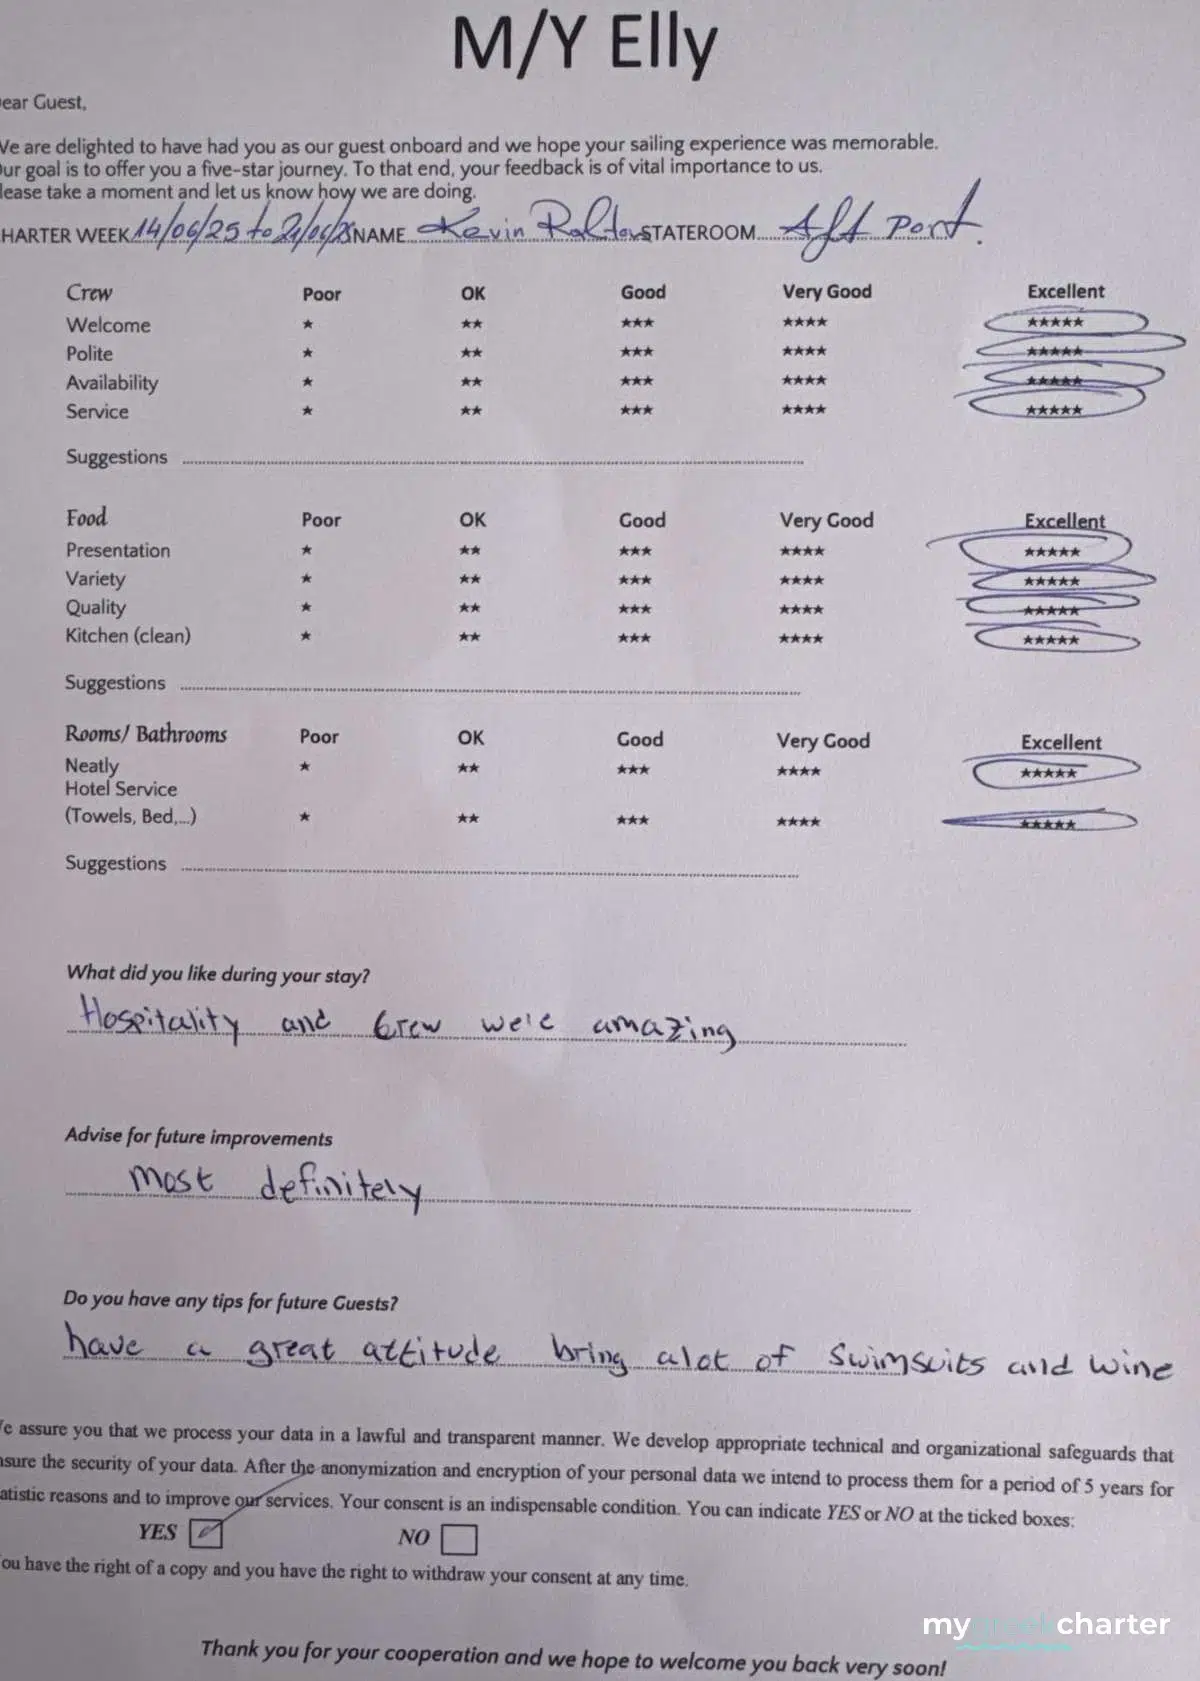 M/Y Elly
ear Guest,
We are delighted to have had you as our guest onboard and we hope your sailing experience was memorable.
ur goal is to offer you a five-star journey. To that end, your feedback is of vital importance to us.
lease take a moment and let us know how we are doing.
HARTER WEEK 14/06/25 to 21/06/25 NAME Kevin STATEROOM Aft Port.
Crew Poor OK Good Very Good Excellent
Welcome ★ ★★ ★★★ ★★★★ ★★★★★
Polite ★ ★★ ★★★ ★★★★ ★★★★★
Availability ★ ★★ ★★★ ★★★★ ★★★★★
Service ★ ★★ ★★★ ★★★★ ★★★★★
Suggestions
Food Poor OK Good Very Good Excellent
Presentation ★ ★★ ★★★ ★★★★ ★★★★★
Variety ★ ★★ ★★★ ★★★★ ★★★★★
Quality ★ ★★ ★★★ ★★★★ ★★★★★
Kitchen (clean) ★ ★★ ★★★ ★★★★ ★★★★★
Suggestions
Rooms/ Bathrooms Poor OK Good Very Good Excellent
Neatly ★ ★★ ★★★ ★★★★ ★★★★★
Hotel Service
(Towels, Bed,...) ★ ★★ ★★★ ★★★★ ★★★★★
Suggestions
What did you like during your stay?
Hospitality and Crew were amazing
Advise for future improvements
most definitely
Do you have any tips for future Guests?
have a great attitude bring alot of swimsuits and wine
e assure you that we process your data in a lawful and transparent manner. We develop appropriate technical and organizational safeguards that
nsure the security of your data. After the anonymization and encryption of your personal data we intend to process them for a period of 5 years for
atistic reasons and to improve our services. Your consent is an indispensable condition. You can indicate YES or NO at the ticked boxes:
YES NO
ou have the right of a copy and you have the right to withdraw your consent at any time.
mygreekcharter
Thank you for your cooperation and we hope to welcome you back very soon!